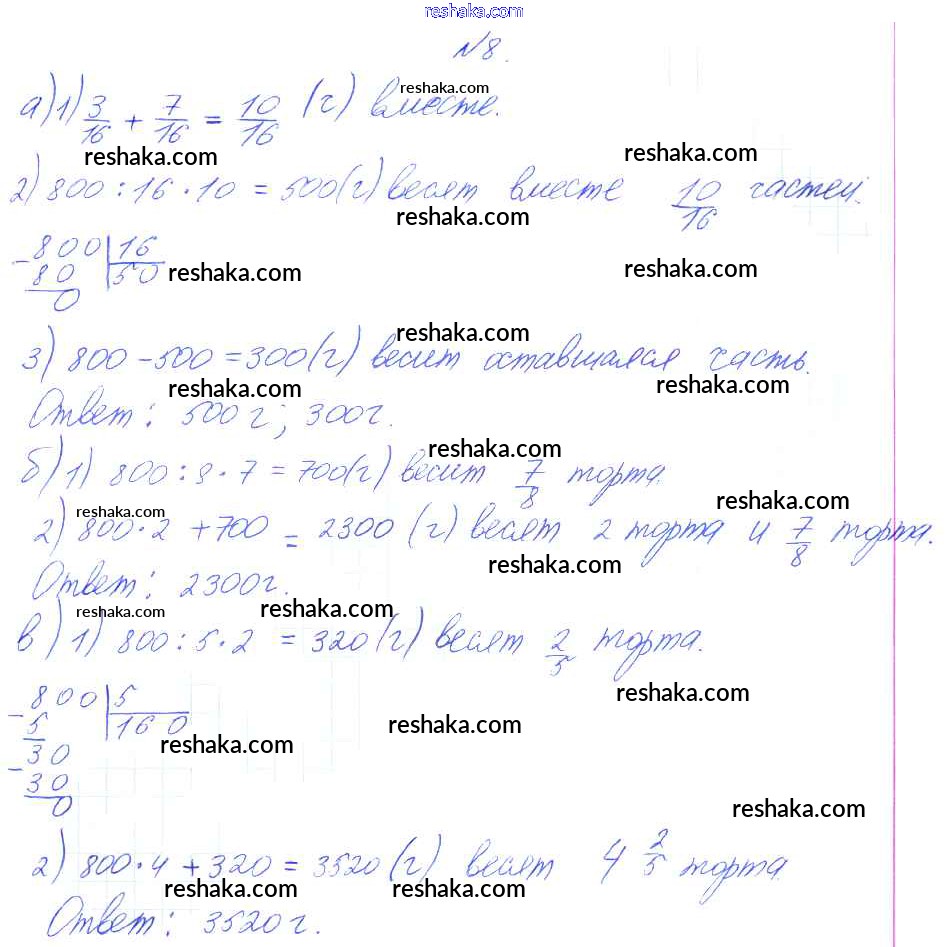 reshaka.com
№8.
reshaka.com
а) 1) 3/16 + 7/16 = 10/16 (г) вместе.
reshaka.com reshaka.com
2) 800 : 16 · 10 = 500 (г) весят вместе 10/16 частей.
reshaka.com
- 800 | 16
80 | 50 reshaka.com reshaka.com
0
reshaka.com
3) 800 - 500 = 300 (г) весит оставшаяся часть.
reshaka.com reshaka.com
Ответ: 500 г; 300 г.
reshaka.com
б) 1) 800 : 8 · 7 = 700 (г) весит 7/8 торта.
reshaka.com reshaka.com
2) 800 · 2 + 700 = 2300 (г) весят 2 торта и 7/8 торта.
reshaka.com
Ответ: 2300 г.
reshaka.com reshaka.com
в) 1) 800 : 5 · 2 = 320 (г) весят 2/5 торта.
reshaka.com
- 800 | 5
5 | 160
reshaka.com reshaka.com
30
- 30
0
reshaka.com
2) 800 · 4 + 320 = 3520 (г) весят 4 2/5 торта.
reshaka.com reshaka.com
Ответ: 3520 г.